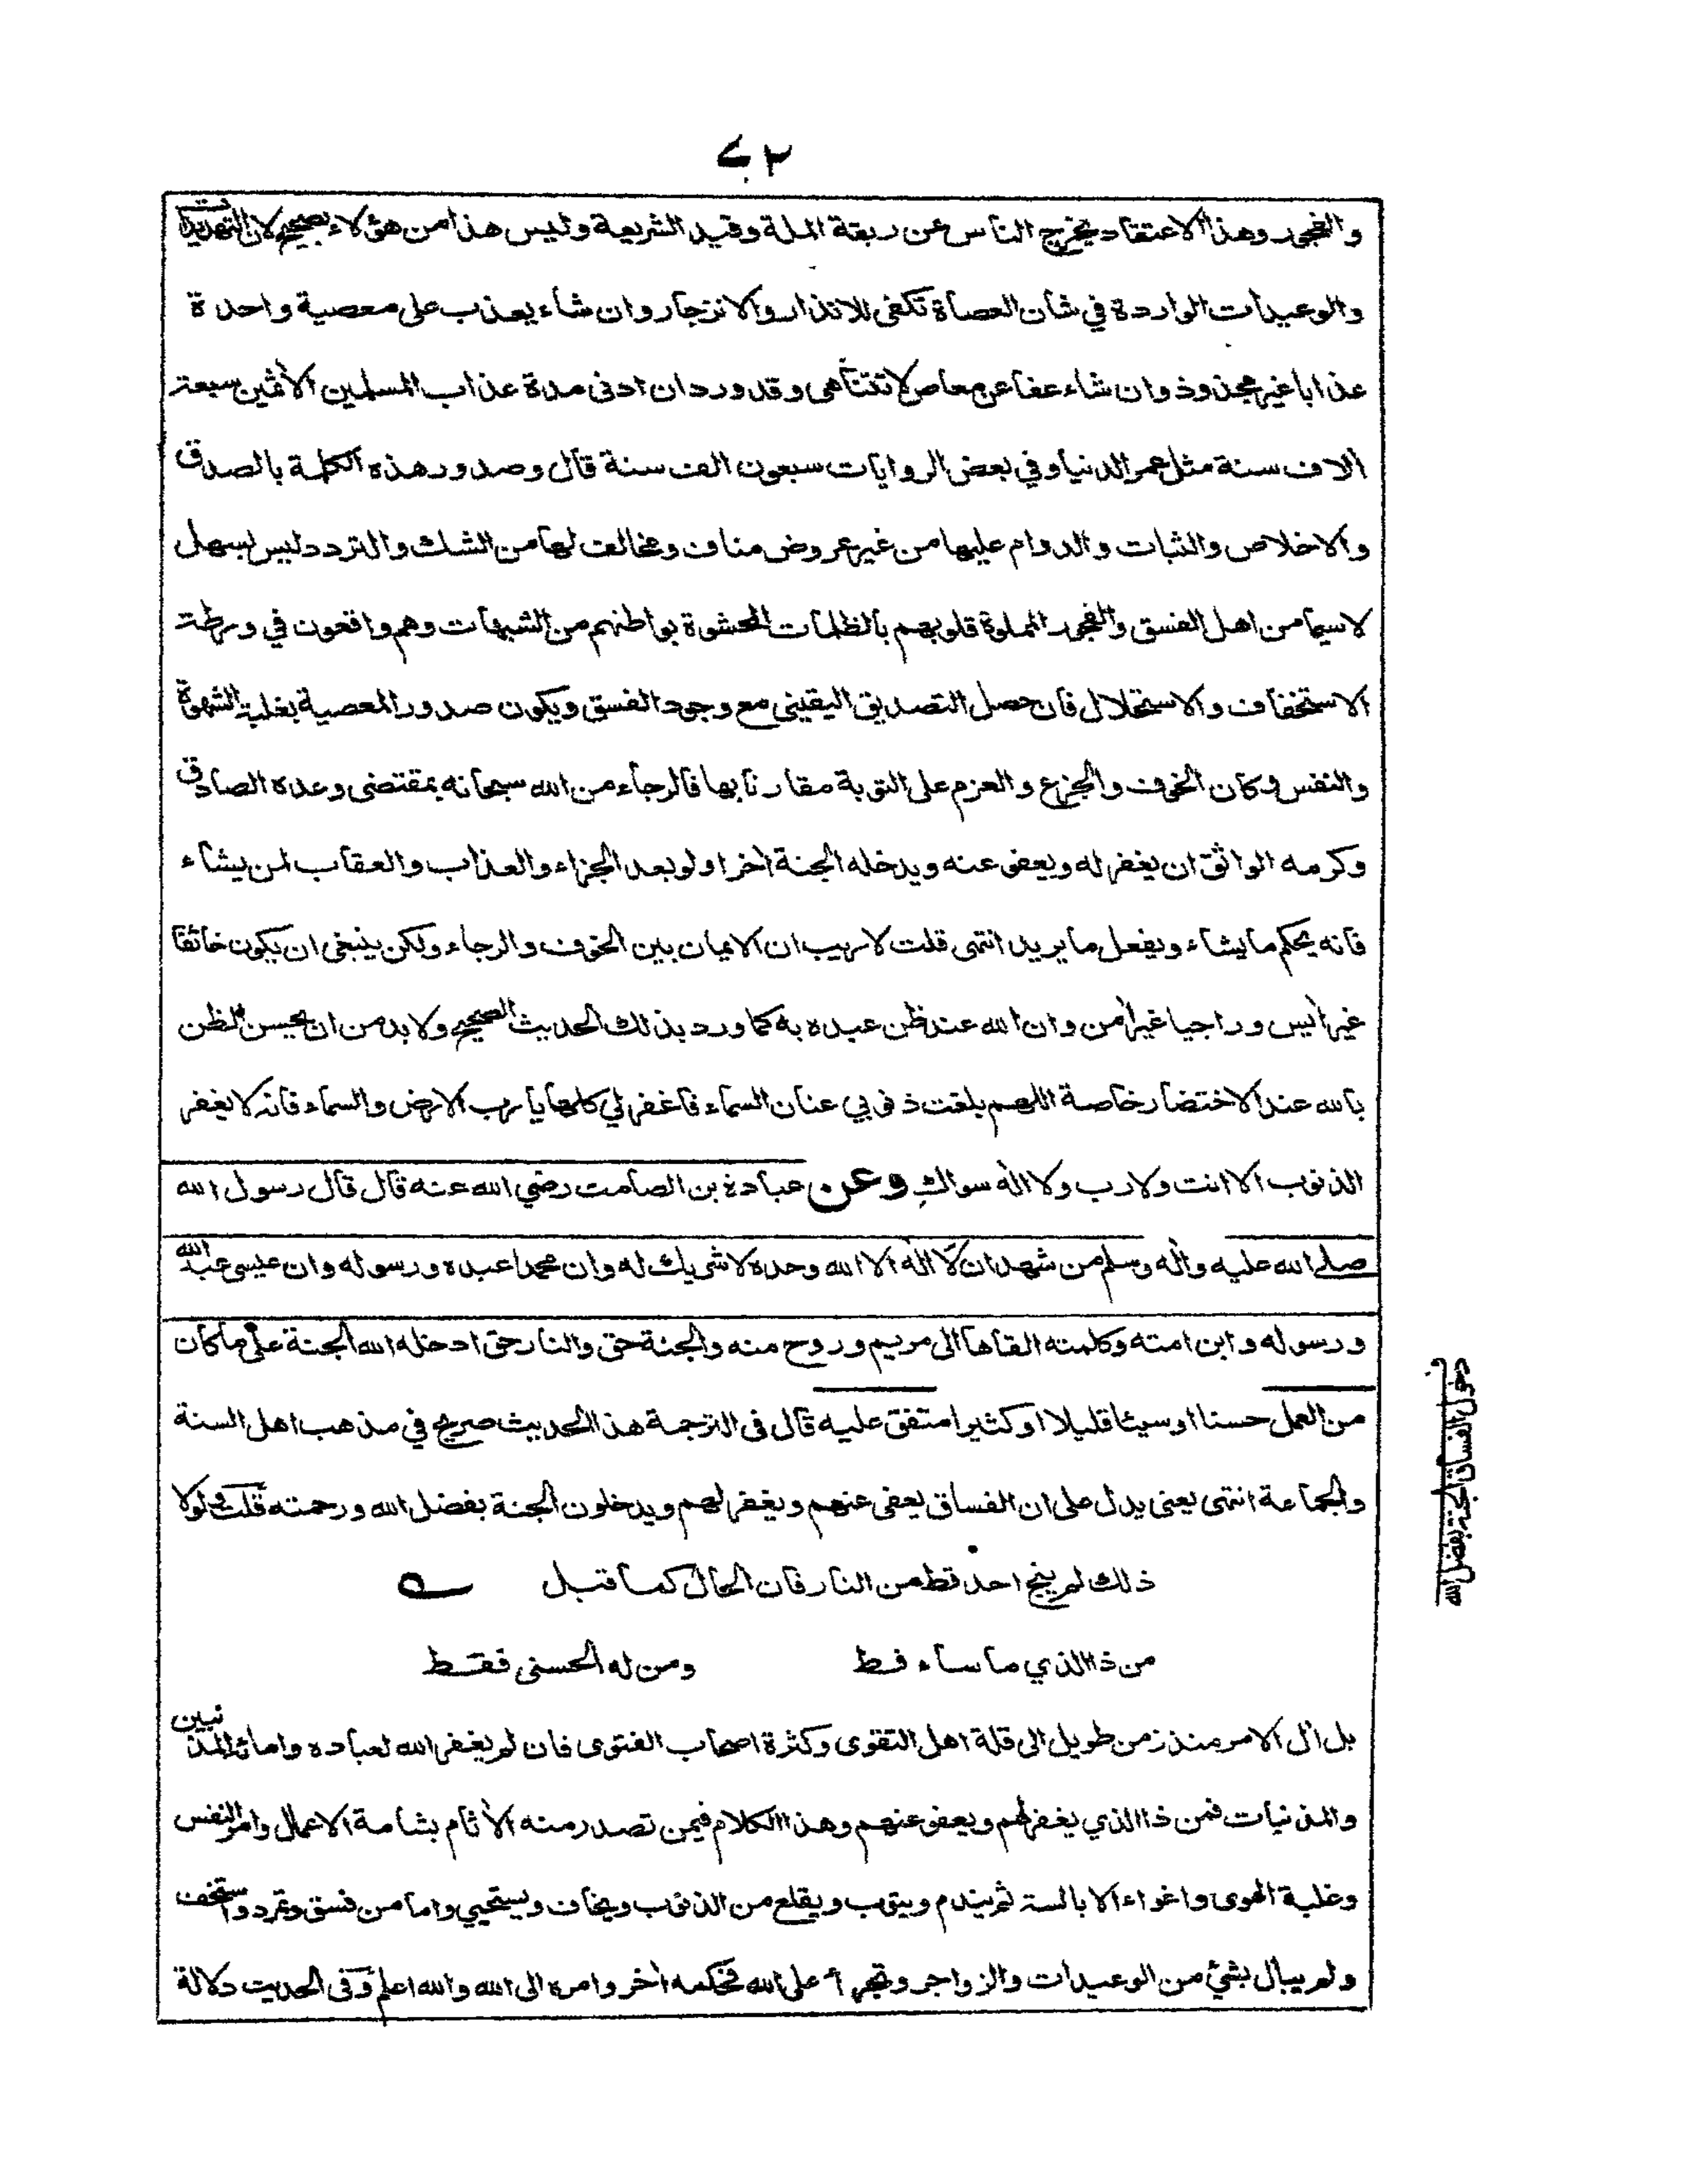 ٧٢
والفجور وهذا الاعتقاد يخرج الناس عن ربقة الملة وقيد الشريعة وليس هذا من هؤلاء بصحيح لان التهديدات
والوعيدات الواردة في شان العصاة تكفى للانذار والانزجار وان شاء يعذب على معصية واحدة
عذابا غير مجذوذ وان شاء عفا عن معاص لا تتناهى وقد ورد ان ادنى مدة عذاب المسلمين الآثمين سبعة
آلاف سنة مثل عمر الدنيا وفي بعض الروايات سبعون الف سنة قال وصدور هذه الكلمة بالصدق
والاخلاص والثبات والدوام عليها من غير عروض مناف ومخالف لها من الشك والتردد ليس بسهل
لا سيما من اهل الفسق والفجور المملوة قلوبهم بالظلمات المحشوة بواطنهم من الشبهات وهم واقعون في ورطة
الاستخفاف والاستحلال فان حصل التصديق اليقيني مع وجود الفسق ويكون صدور المعصية بغلبة الشهوة
والنفس وكان الخوف والجزع والعزم على التوبة مقارنا بها فالرجاء من الله سبحانه بمقتضى وعده الصادق
وكرمه الواثق ان يغفر له ويعفو عنه ويدخله الجنة آخرا ولو بعد الجزاء والعذاب والعقاب لمن يشاء
فانه يحكم ما يشاء ويفعل ما يريد انتهى قلت لا ريب ان الايمان بين الخوف والرجاء ولكن ينبغى ان يكون خائفا
غير آيس وراجيا غير آمن وان الله عند ظن عبده به كما ورد بذلك الحديث الصحيح ولا بد من ان يحسن الظن
بالله عند الاختضار خاصة اللهم بلغت ذنوبي عنان السماء فاغفر لي كلها يا رب الارض والسماء فانه لا يغفر
الذنوب الا انت ولا رب ولا اله سواك وعن عبادة بن الصامت رضي الله عنه قال قال رسول الله
صلى الله عليه وآله وسلم من شهد ان لا اله الا الله وحده لا شريك له وان محمدا عبده ورسوله وان عيسى عبد الله
ورسوله وابن امته وكلمته القاها الى مريم وروح منه والجنة حق والنار حق ادخله الله الجنة على ما كان
من العمل حسنا او سيئا قليلا او كثيرا متفق عليه قال فى الترجمة هذا الحديث صريح في مذهب اهل السنة
والجماعة انتهى يعنى يدل على ان الفساق يعفى عنهم ويغفر لهم ويدخلون الجنة بفضل الله ورحمته قلت ولولا
ذلك لم ينج احد قط من النار فان الحال كما قيل
من ذا الذي ما ساء قط ومن له الحسنى فقط
بل آل الامر منذ زمن طويل الى قلة اهل التقوى وكثرة اصحاب الفتوى فان لم يغفر الله لعباده وامائه المذنبين
والمذنبات فمن ذا الذي يغفر لهم ويعفو عنهم وهذا الكلام فيمن تصدر منه الآثام بشامة الاعمال وامر النفس
وغلبة الهوى واغواء الابالسة ثم يندم ويتوب ويقلع من الذنوب ويخاف ويستحيي واما من فسق وتمرد واستخف
ولم يبال بشئ من الوعيدات والزواجر وتجرأ على الله فحكمه آخر وامره الى الله والله اعلم وفى الحديث دلالة
دخول الفساق الجنة بفضل الله